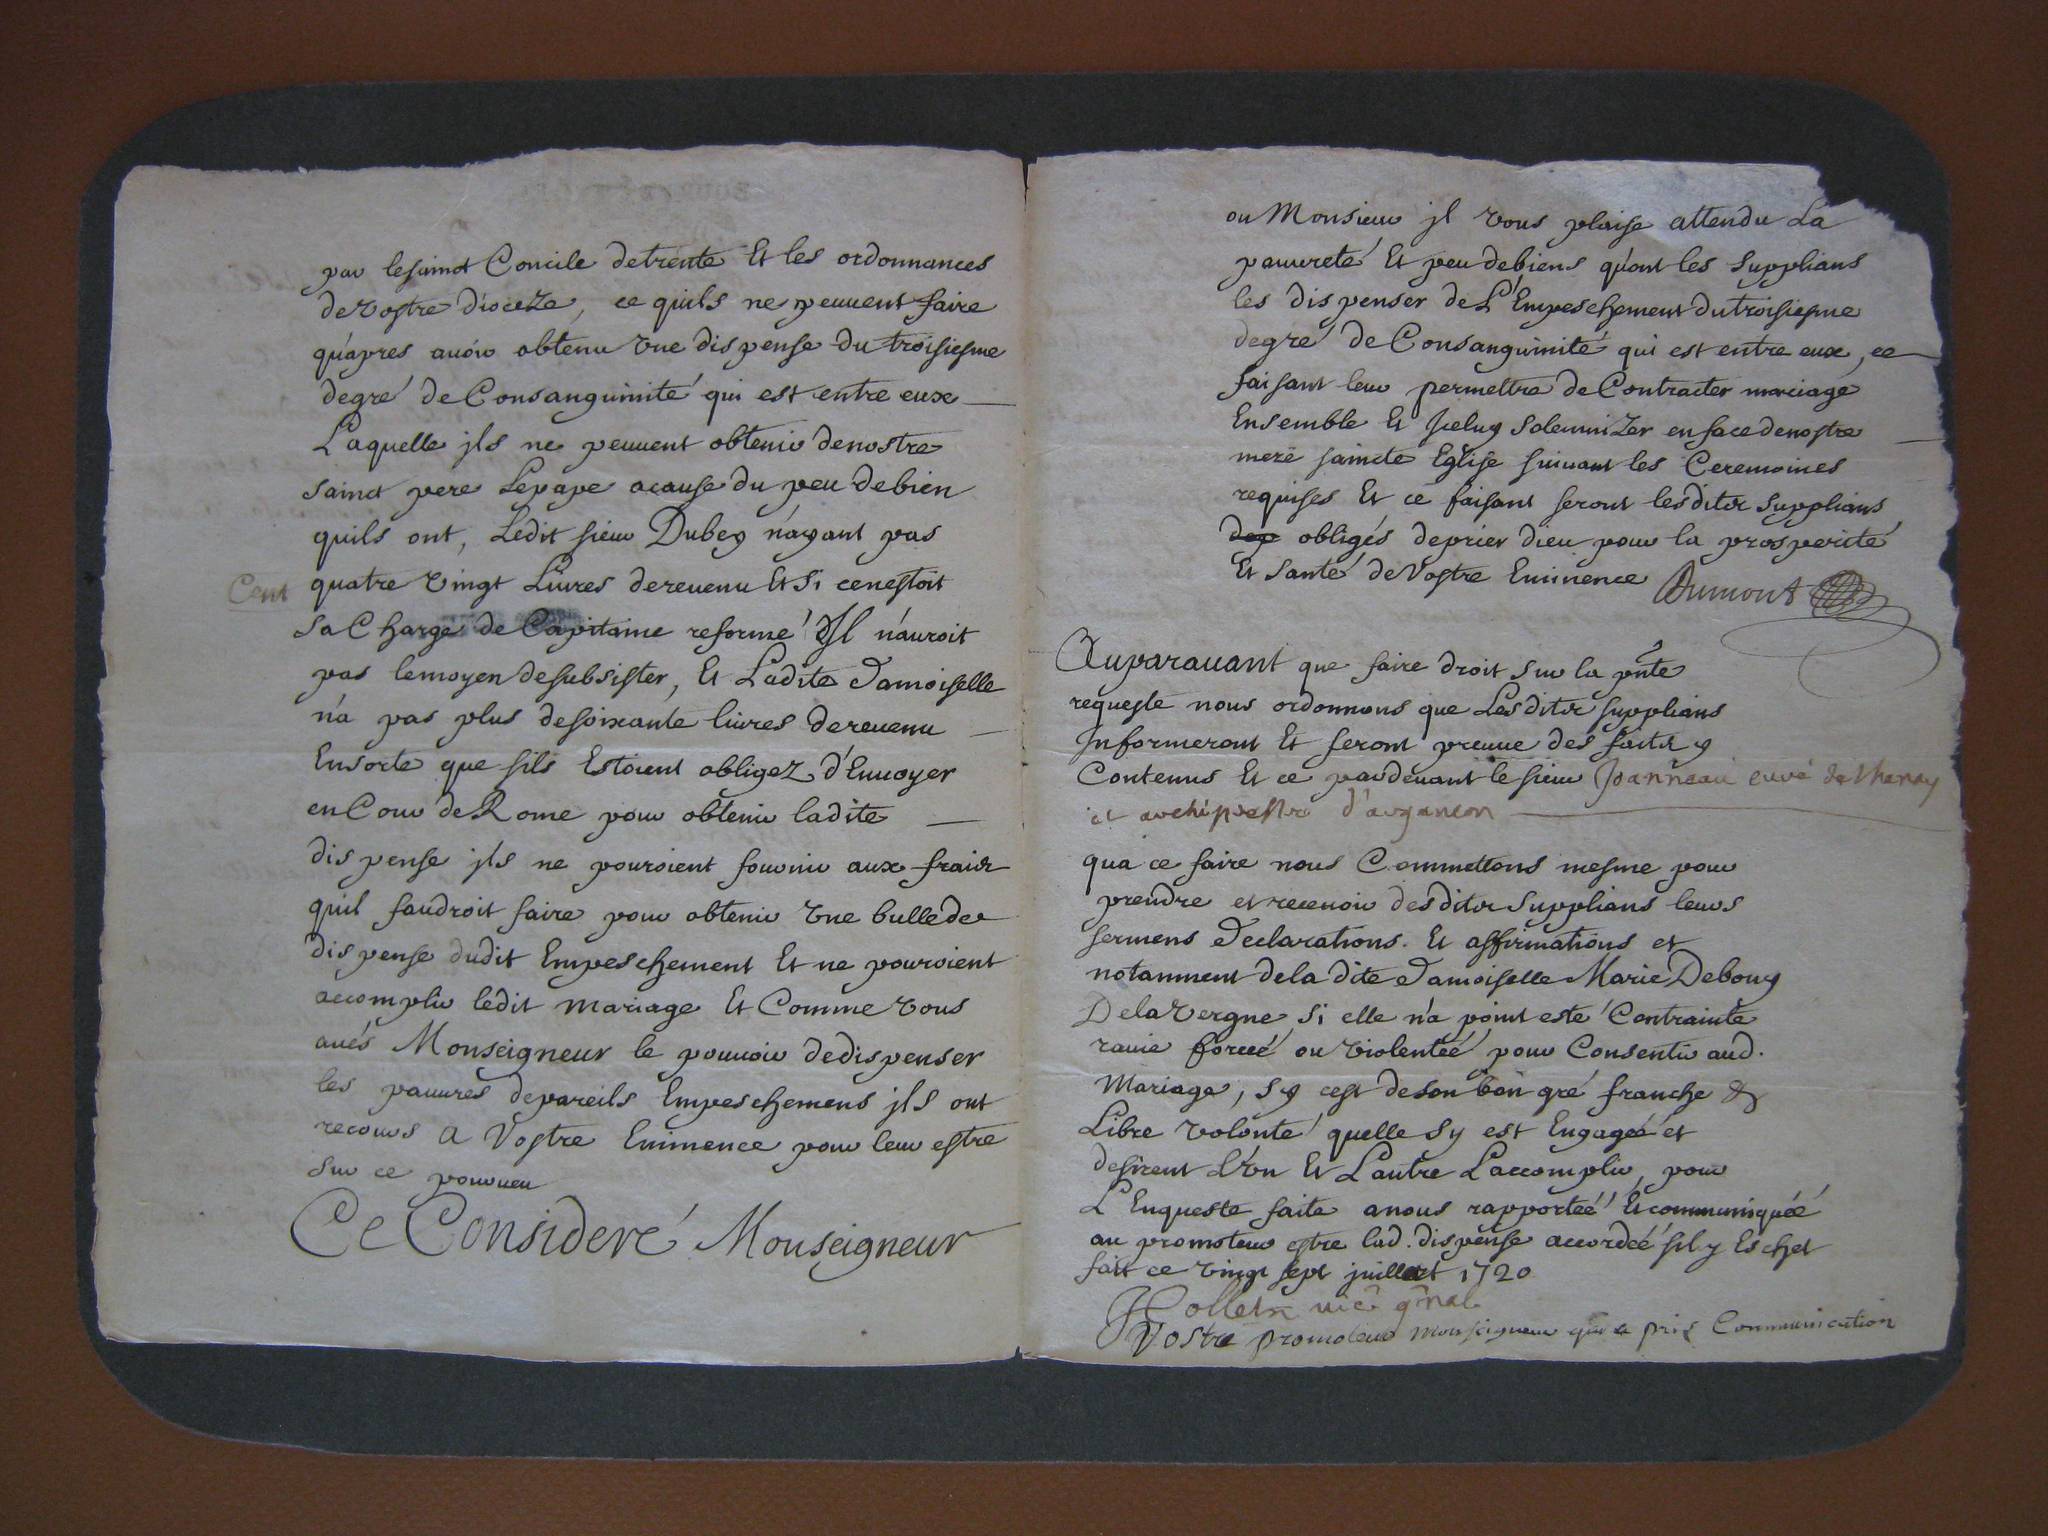 par lesainct Concile detrente Et les ordonnances
devostre dioceze, ce quils ne peuuent faire
qu'apres auoir obtenu vne dispense du troisiesme
degré de Consanguinité qui est entre eux
Laquelle jls ne peuuent obtenir denostre
sainct pere Lepape acause du peu debien
quils ont, Ledit sieur Dubey n'ayant pas
Cent quatre vingt Liures dereuenu Et si cenestoit
sa Charge de Capitaine reformé Il n'auroit
pas lemoyen desubsister, Et Ladite damoiselle
n'a pas plus desoixante liures dereuenu
Ensorte que sils Estoient obligez d'Enuoyer
en Cour de Rome pour obtenir ladite
dispense jls ne pouroient fournir aux frais
quil faudroit faire pour obtenir vne bulle de
dispense dudit Empeschement Et ne pouroient
accomplir ledit mariage Et Comme vous
aués Monseigneur le pouuoir dedispenser
les pauures depareils Empeschemens jls ont
recours a Vostre Eminence pour leur estre
sur ce pourueu
Ce Consideré Monseigneur
ou Monsieur jl vous plaise attendu La
pauureté Et peu debiens qu'ont les supplians
les dispenser de L'Empeschement du troisiesme
degré de Consanguinité qui est entre eux, ce
faisant leur permettre de Contracter mariage
Ensemble Et Jceluy solemnizer en face denostre
mere saincte Eglise suiuant les Ceremoines
requises Et ce faisant seront lesdits supplians
obligés deprier dieu pour la prosperité
Et santé de Vostre Eminence Dumont
Auparauant que faire droit sur la pnte
requeste nous ordonnons que Lesdits supplians
Informeront Et feront preuue des faits y
Contenus Et ce pardeuant le sieur Joanneau curé de thenay
et archiprestre d'argançon
qua ce faire nous Commettons mesme pour
prendre et receuoir desdits supplians leurs
sermens declarations. Et affirmations et
notamment dela dite damoiselle Marie Debouy
Delavergne si elle n'a point esté Contrainte
rauie forcée ou violentée pour Consentir aud.
Mariage, sy cest deson bon gré franche &
Libre volonté quelle sy est Engagée et
desirent L'vn Et L'autre L'accomplir, pour
L'Enqueste faite anous rapportée Et communiquée
au promoteur estre lad. dispense accordée sil y Eschet
fait ce vingt sept juillet 1720
vic gnal
Vostre promoteur Monseigneur qui a pris Communication